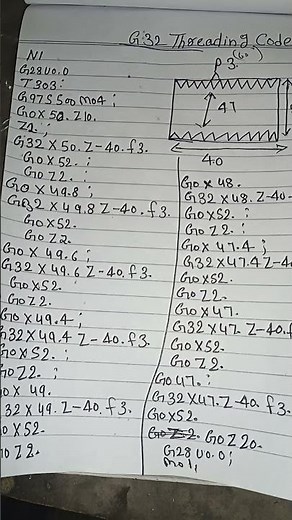 G32 Threading Code
N1
G28U0.0
T303;
G97S500M04;
G0X50.Z10.
Z2.;
G32X50.Z-40.f3.
G0X52.;
G0Z2.;
G0X49.8;
G32X49.8Z-40.f3.
G0X52.
G0Z2.
G0X49.6;
G32X49.6Z-40.f3.
G0X52.
G0Z2.
G0X49.4;
G32X49.4Z-40.f3.
G0X52.;
G0Z2.;
G0X49.
G32X49.Z-40.f3.
G0X52.
G0Z2.
P3.
47
40
G0X48.
G32X48.Z-40
G0X52.;
G0Z2.;
G0X47.4;
G32X47.4Z-4
G0X52.
G0Z2.
G0X47.
G32X47.Z-40.f
G0X52.
G0Z2.
G047.;
G32X47.Z-40.f3.
G0X52.
G0Z20.
G28U0.0;
M01,